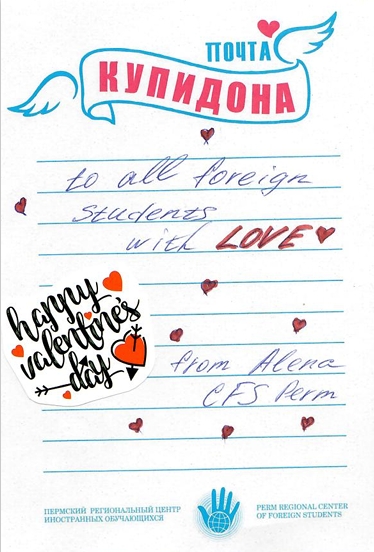 ПОЧТА
КУПИДОНА
to all foreign
students
with LOVE
happy
valentine's
day
from Alena
CFS Perm
ПЕРМСКИЙ РЕГИОНАЛЬНЫЙ ЦЕНТР
ИНОСТРАННЫХ ОБУЧАЮЩИХСЯ
PERM REGIONAL CENTER
OF FOREIGN STUDENTS